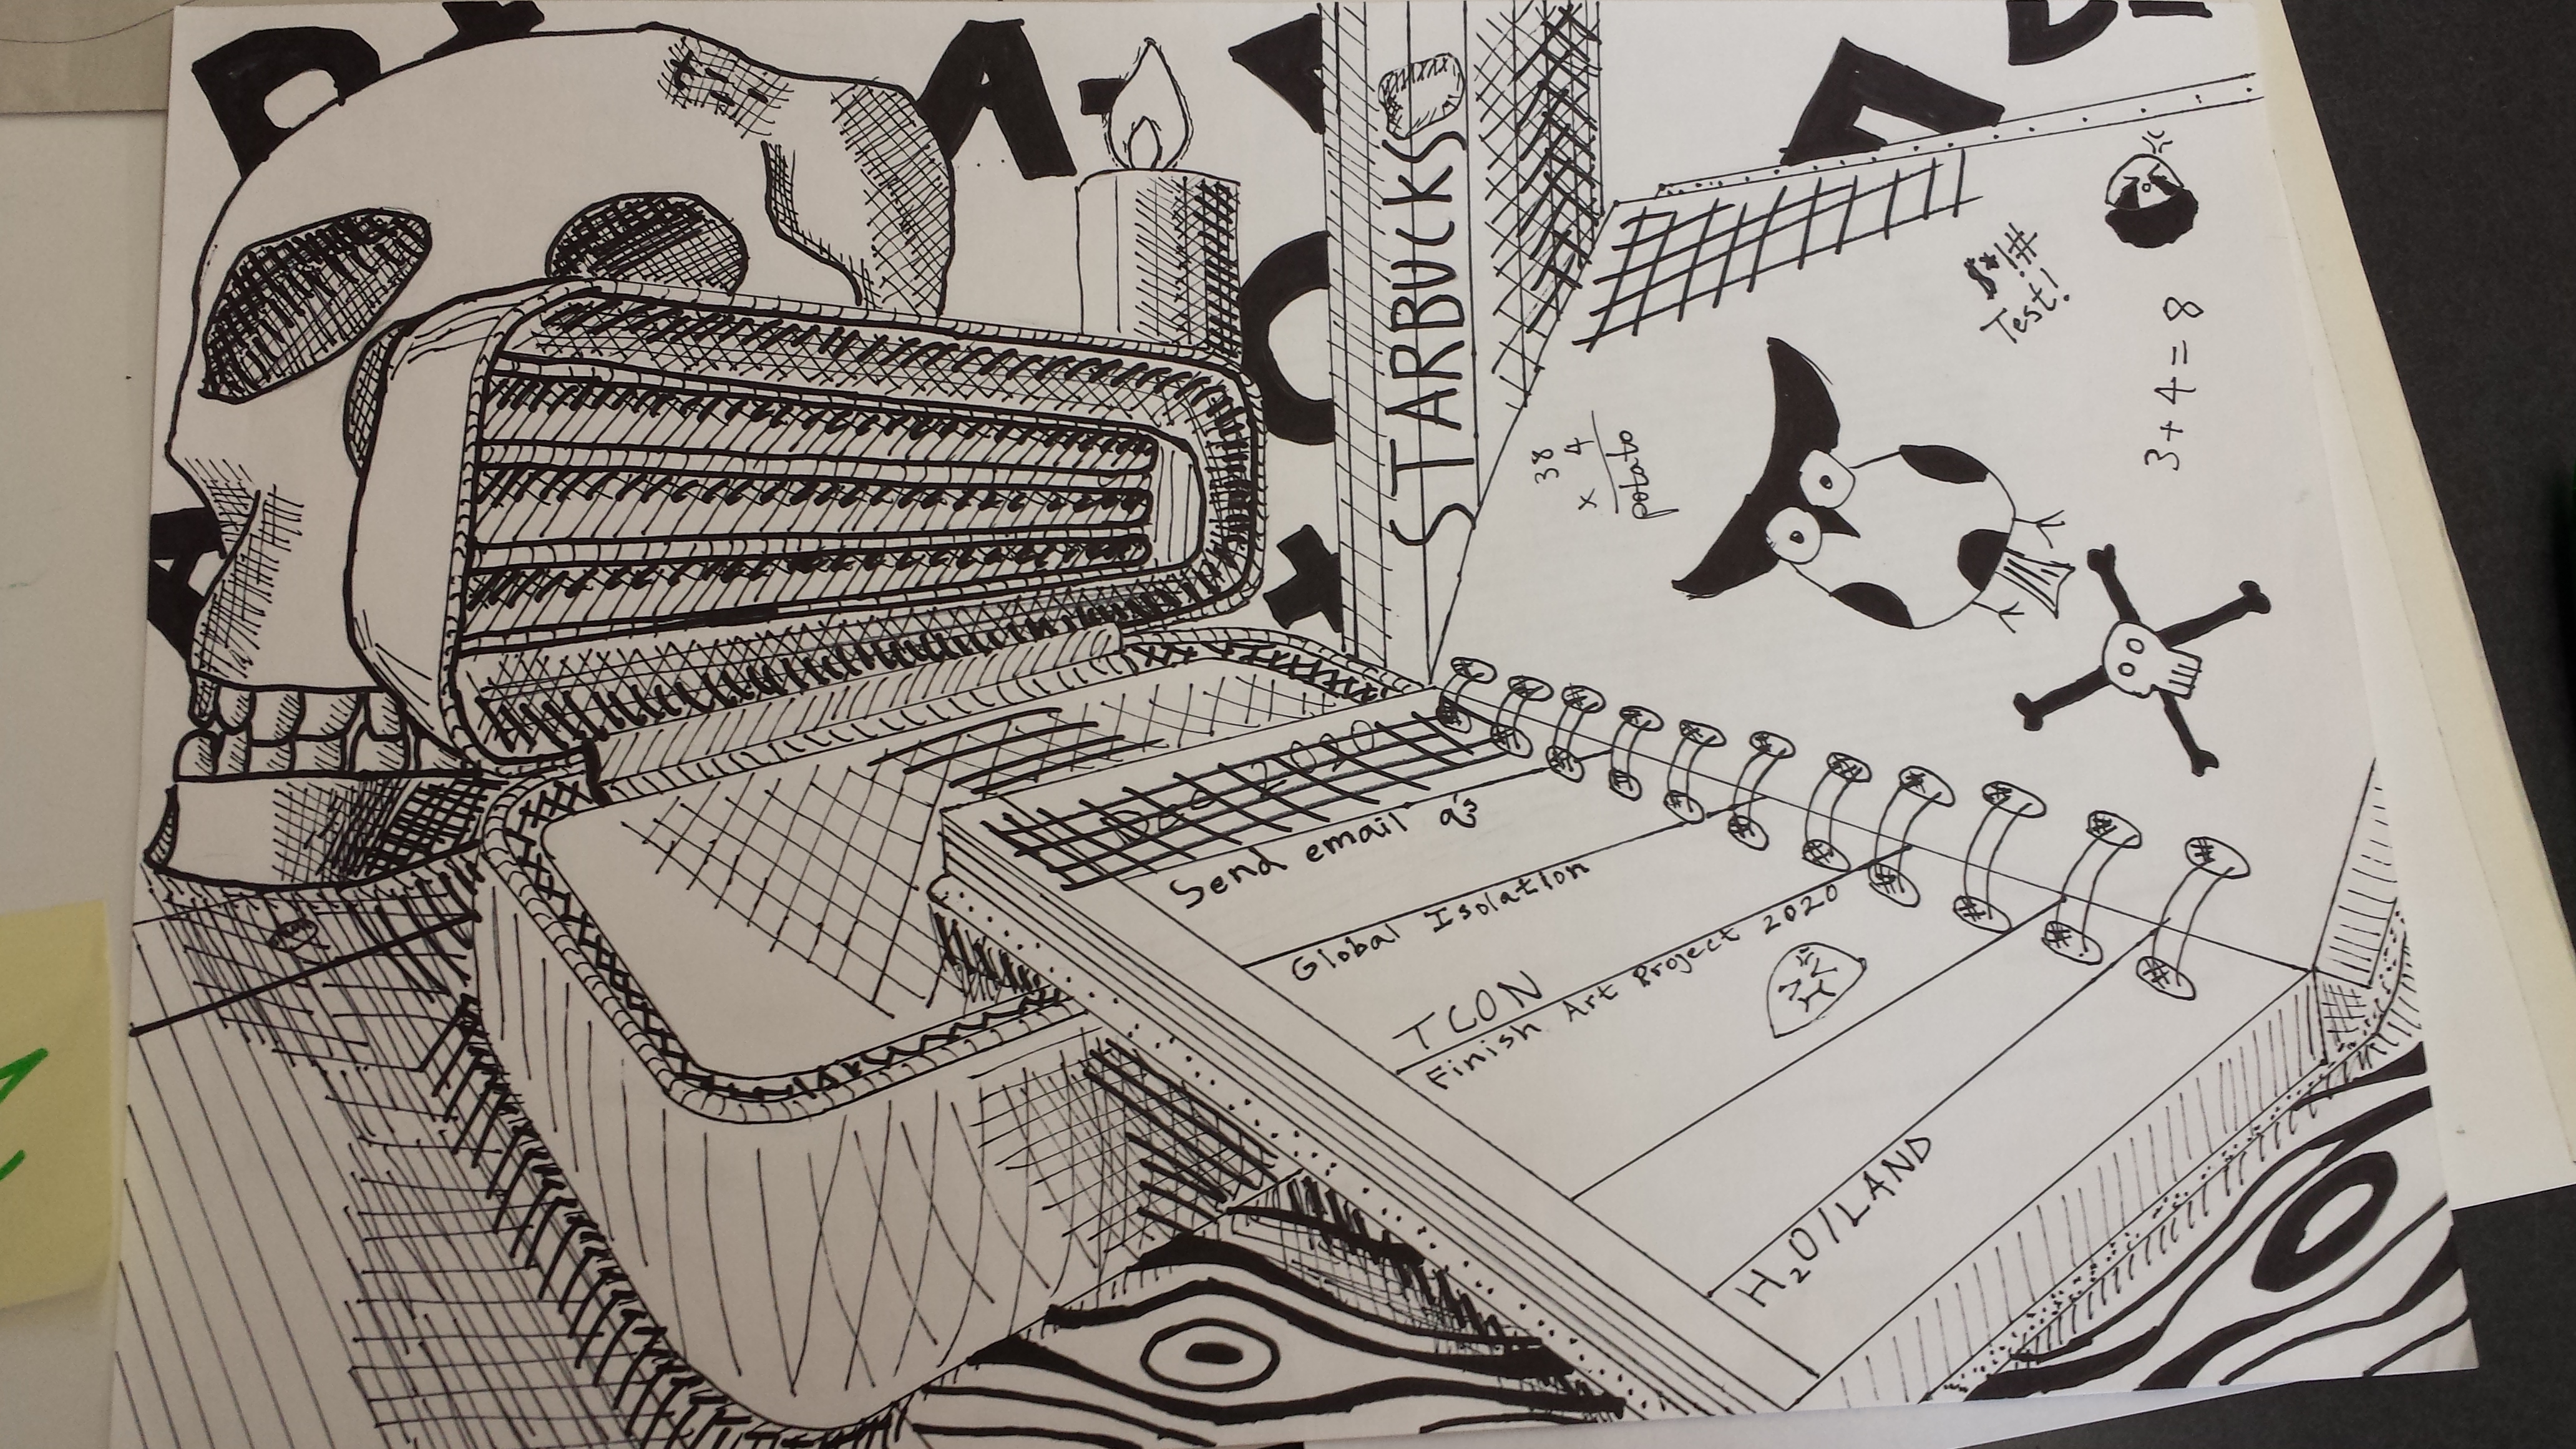 STARBUCKS
$*!#
Test!
3+4=8
38
x 4
potato
Dec 2020
Send email q's
Global Isolation
TCON
Finish Art Project 2020
H₂O/LAND